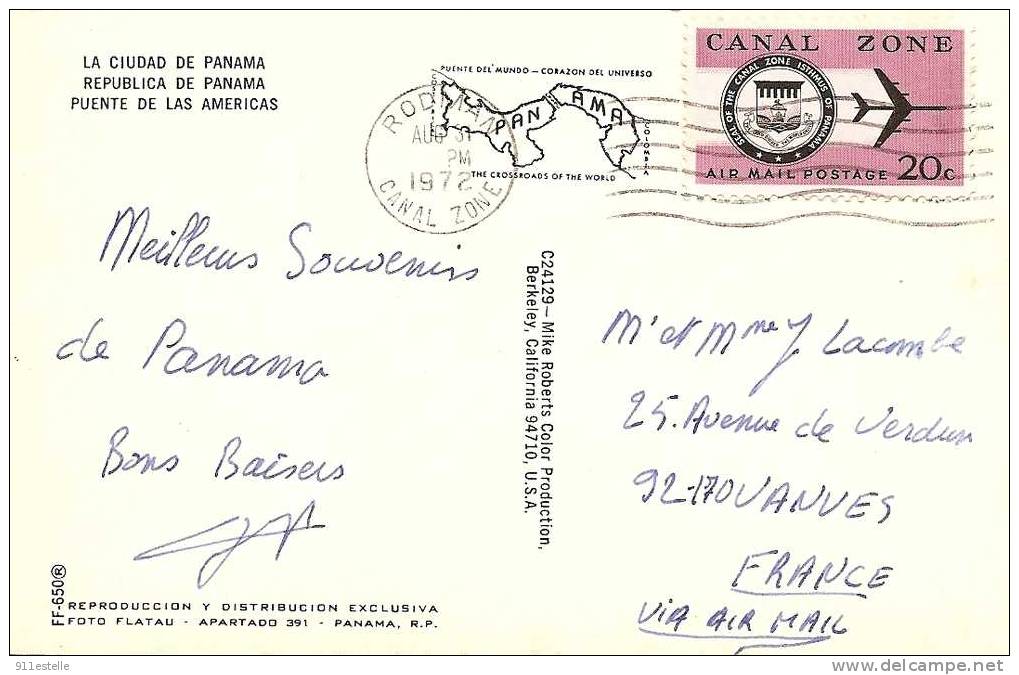 LA CIUDAD DE PANAMA
REPUBLICA DE PANAMA
PUENTE DE LAS AMERICAS
PUENTE DEL MUNDO — CORAZON DEL UNIVERSO
PANAMA
COLOMBIA
THE CROSSROADS OF THE WORLD
RODMAN
AUG 31
PM
1972
CANAL ZONE
CANAL ZONE
SEAL OF THE CANAL ZONE ISTHMUS OF PANAMA
AIR MAIL POSTAGE 20c
Meilleurs Souvenirs
de Panama
Bons Baisers
C24129—Mike Roberts Color Production,
Berkeley, California 94710, U.S.A.
M' et Mme J Lacombe
25. Avenue de Verdun
92-170 VANVES
FRANCE
VIA AIR MAIL
FF-650®
REPRODUCCION Y DISTRIBUCION EXCLUSIVA
FOTO FLATAU - APARTADO 391 - PANAMA, R.P.
911estelle
www.delcampe.net